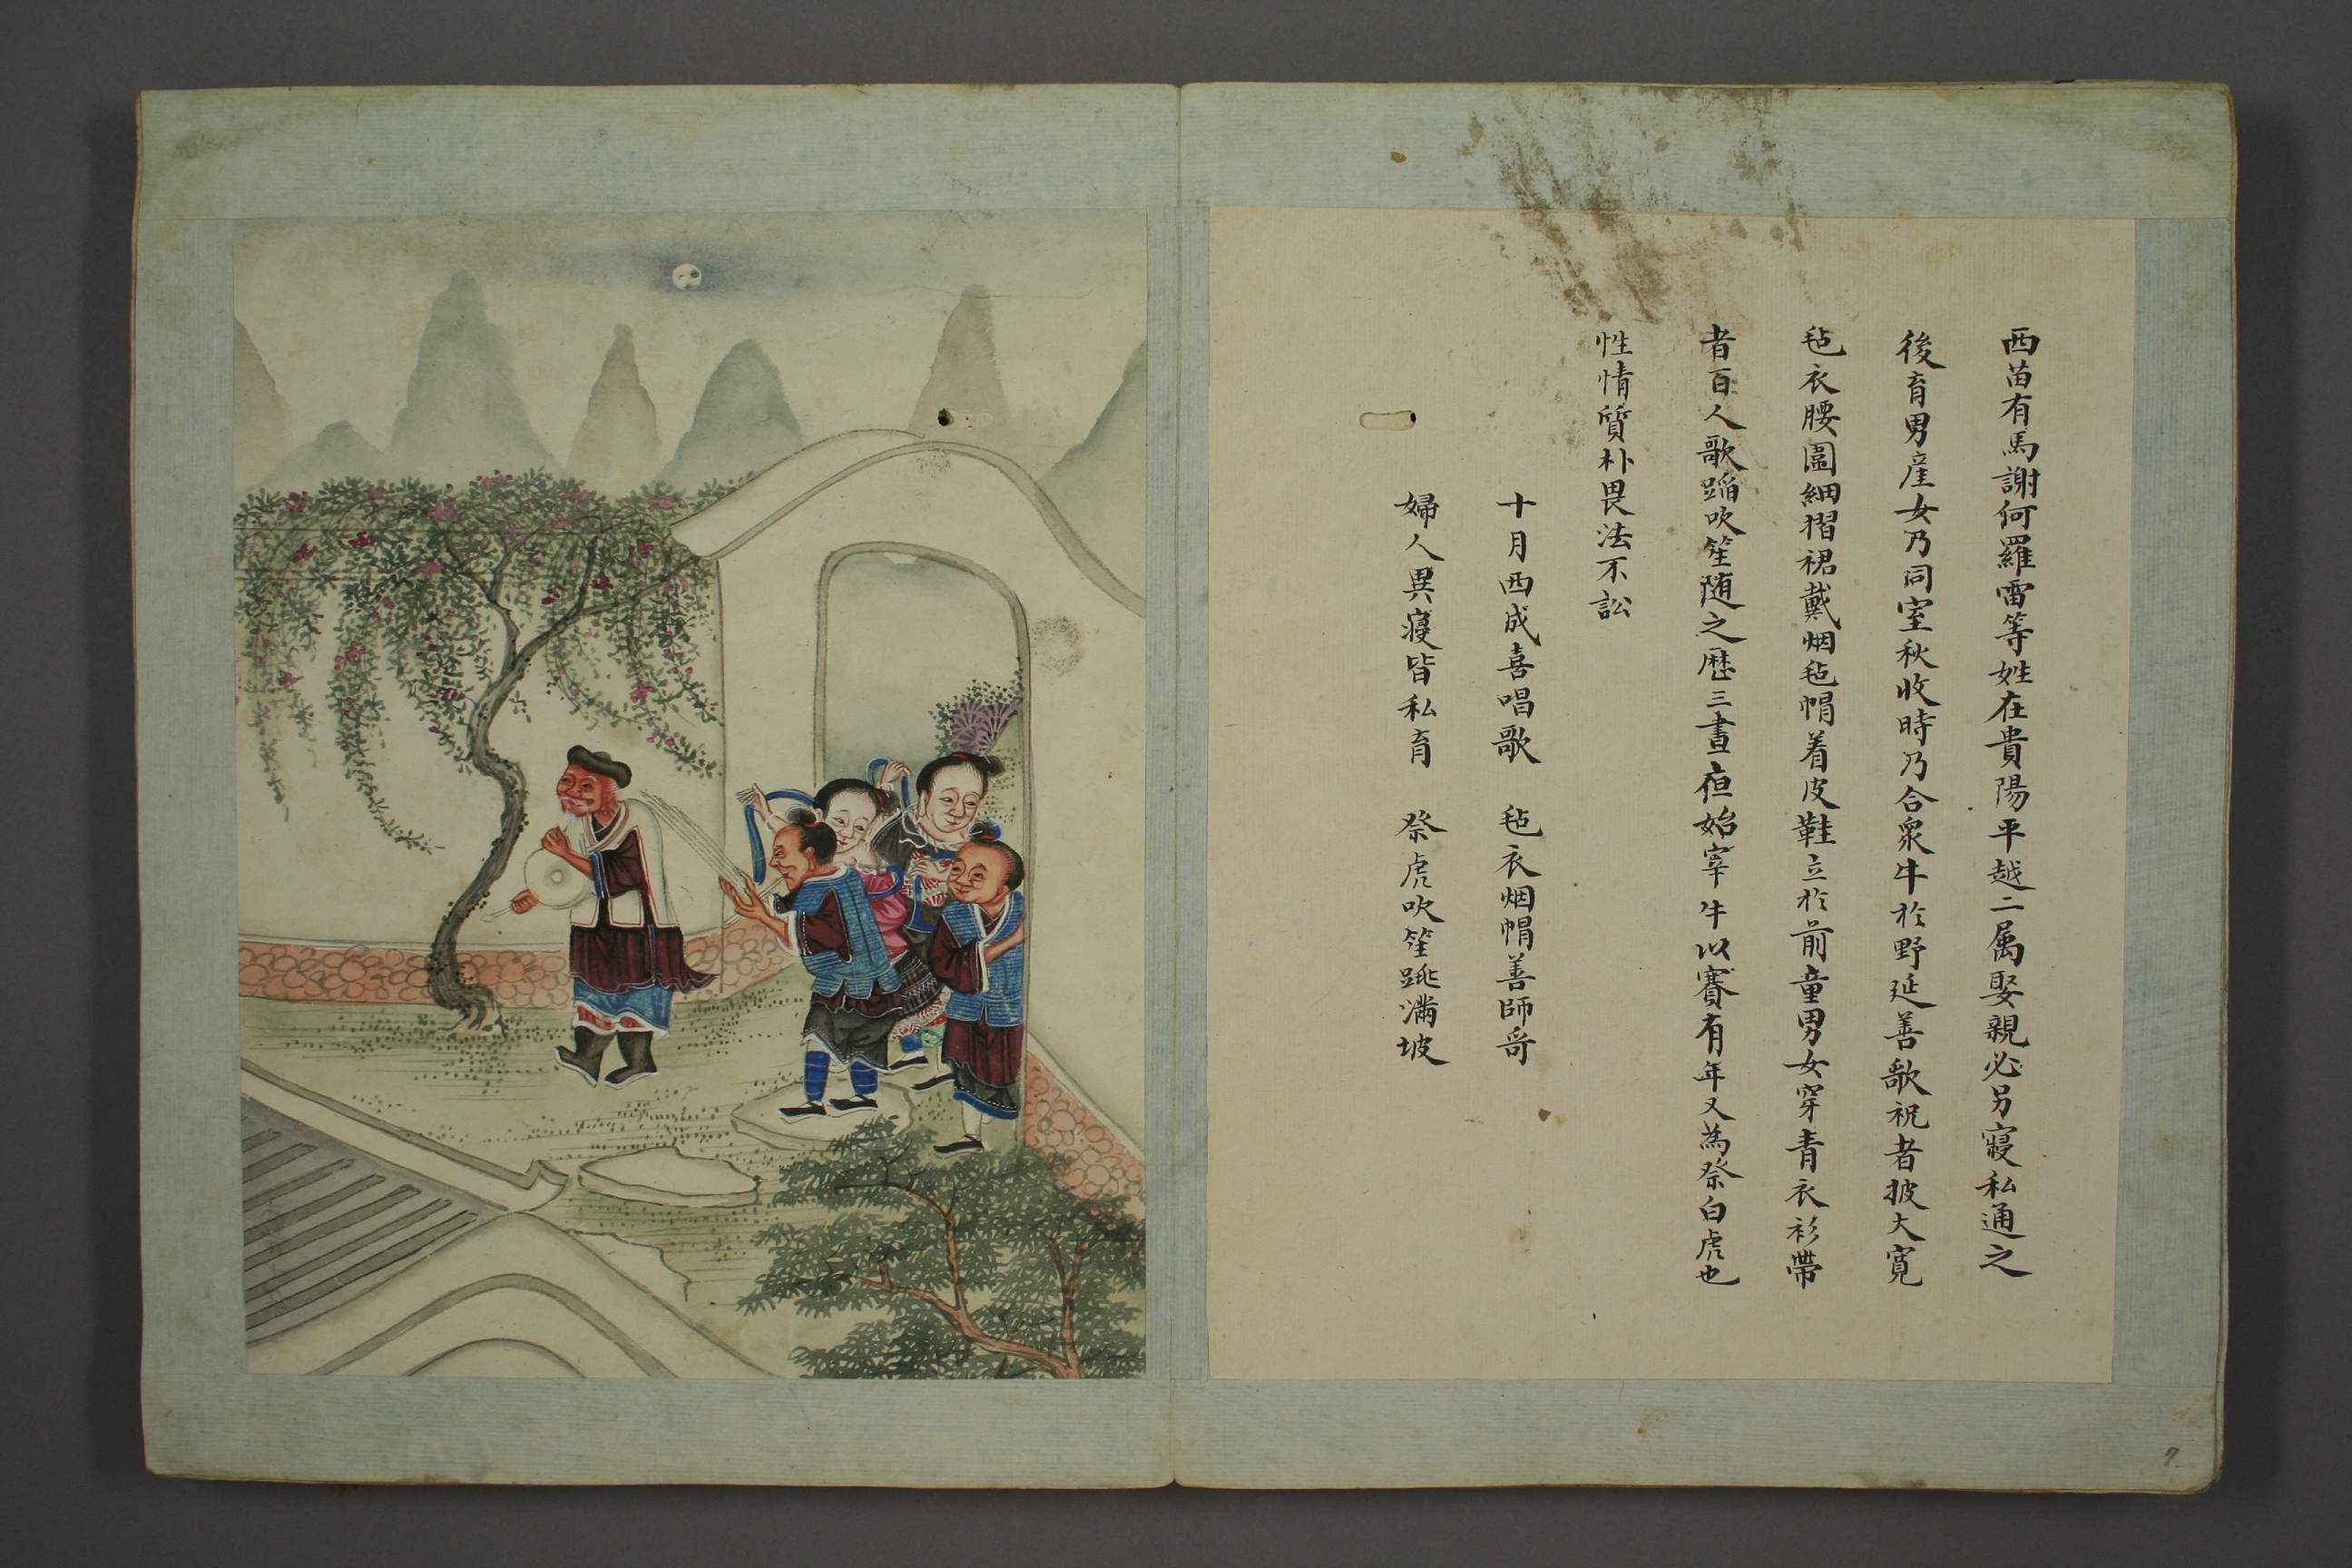 西苗有馬謝何羅雷等姓在貴陽平越二属娶親必另寢私通之
後育男產女乃同室秋收時乃合衆牛於野延善歌祝者披大寬
毡衣腰圍細摺裙戴烟毡帽着皮鞋立於前童男女穿青衣衫帶
者百人歌蹈吹笙随之歷三晝夜始宰牛以賽有年又為祭白虎也
性情質朴畏法不訟
十月西成喜唱歌　毡衣烟帽善師哥
婦人異寢皆私育　祭虎吹笙跳滿坡
7